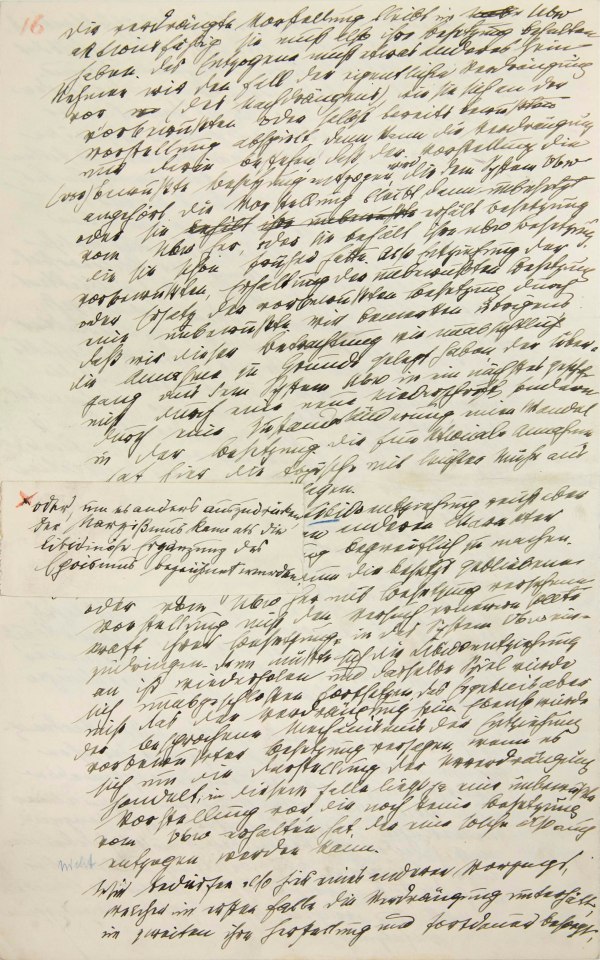 16
die verdrängte Vorstellung bleibt im Ubw
aktionsfähig sie muß also ihre Besetzung behalten
haben. Das Entzogene muß etwas anderes sein
Nehmen wir den Fall der eigentlichen Verdrängung
vor (des Nachdrängens), wie sie sich an der
vorbewußten oder selbst bereits bewußten
Vorstellung abspielt dann kann die Verdrängung
nur darin bestehen daß der Vorstellung die
(vor)bewußte Besetzung entzogen wird die dem System Vbw
angehört. die Vorstellung bleibt dann unbesetzt
oder sie erhält Besetzung
vom Ubw her, oder sie behält ubw Besetzung,
die sie schon früher hatte. Also Entziehung der
vorbewußten, Erhaltung der unbewußten Besetzung
oder Ersatz der vorbewußten Besetzung durch
eine unbewußte. Wir bemerken übrigens
daß wir dieser Betrachtung wie unabsichtlich
die Annahme zu Grunde gelegt haben, der Über-
gang aus dem System Ubw in ein nächstes
nicht durch eine neue Niederschrift, sondern
durch eine Zustandsänderung einen Wandel
in der Besetzung. die funktionale Annahme
hat hier die topische mit leichter Mühe aus
×oder um es anders auszudrücken
der Narzißmus kann als die
libidinöse Ergänzung des
Egoismus bezeichnet werden
Libidoentziehung reicht aber
anderen Charakter
begreiflich zu machen.
die besetzt gebliebene
oder vom Ubw her mit Besetzung versehene
Vorstellung nicht den Versuch erneuern sollte
kraft ihrer Besetzung in das System Vbw ein-
zudringen. dann müßte sich die Libidoentziehung
an ihr wiederholen und dasselbe Spiel würde
sich unabgeschlossen fortsetzen, das Ergebnis aber
nicht das der Verdrängung sein. Ebenso würde
der besprochene Mechanismus der Entziehung
vorbewußter Besetzung versagen, wenn es
sich um die Darstellung der Urverdrängung
handelt, in diesem Falle liegt ja eine unbewußte
Vorstellung vor die noch keine Besetzung
vom Vbw erhalten hat, der eine solche also auch
nicht entzogen werden kann.
Wir bedürfen also hier eines anderen Vorgangs,
welcher im ersten Falle die Verdrängung unterhält,
im zweiten ihre Herstellung und Fortdauer besorgt,